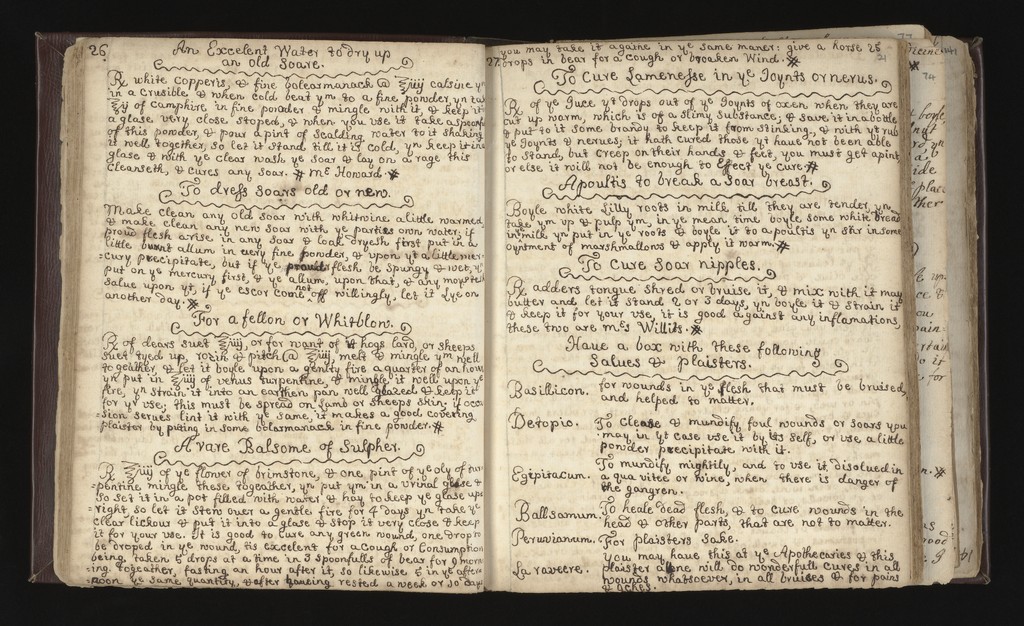 26
An Excelent Water to dry up
an old soare.
℞ white Copperis, & fine bolearmanack @ ℥iiij calsine ym
in a Crusible, & when cold beat ym to a fine powder, yn take
℥ij of camphire in fine powder & mingle with it, & keep it in
a glase very close stoped, & when you use it take a spoonfull
of this powder, & pour a pint of scalding water to it shaking
it well together, so let it stand till it is cold, yn keep it in a
glase & with ye clear wash ye soar & lay on a rage this
Cleanseth, & cures any soar. Mr Howard.
To dress soars old or new.
Make clean any old soar with whitwine a little warmed,
& make clean any new soar with ye parties own water; if
proud flesh arise in any soar & look dryesh first put in a
little burnt allum in very fine powder, & upon yt a little mer=
cury precipitate, but if ye flesh be spungy & wet, yn
put on ye mercury first, & ye allum, upon that, & any moystell
salve upon yt, if ye escor come not off willingly, let it lye on
another day.
For a fellon or Whitblow.
℞ of dears suet ℥iiij, or for want of it hogs lard, or sheeps
suet tyed up, rosin & pitch @ ℥iiij, melt & mingle ym well
together, & let it boyle upon a gentle fire a quarter of an hour
yn put in ℥iiij of venus turpentine, & mingle it well upon ye
fire, yn strain it into an earthen pan well glazed & keep it
for yr use; this must be spread on lamb or sheeps skin, if occa
=sion serves lint it with ye same, it makes a good covering
plaister by puting in some bolarmanack in fine powder.
A rare Balsome of Sulpher.
℞ ℥iiij of ye flower of brimstone, & one pint of ye oly of tur=
=pentine mingle these togeather, yn put ym in a Urinal glase &
so set it in a pot filled with water & hay to keep ye glase up=
right, so let it stew over a gentle fire for 4 days yn take ye
clear lickour & put it into a glase & stop it very close & keep
it for your use. It is good to cure any green wound, one drop to
be droped in ye wound, tis excelent for a Cough or Consumption
being taken 5 drops at a time in 3 spoonfulls of bear for 9 morn=
=ing. together, fasting an hour after it, so likewise 5 in ye after=
noon ye same quantity, & after haveing rested a week or 10 days
27
you may take it againe in ye same maner: give a horse 25
drops in bear for a Cough or broaken Wind.
To Cure Lamenesse in ye Joynts or nerus.
℞ of ye Juce yt drops out of ye Joynts of oxen when they are
cut up warm, which is of a slimy substance; & save it in a bottle
& put to it some brandy to keep it from stinking, & with yt rub
ye Joynts & nerves; it hath cured those yt have not been able
to stand, but creep on their hands & feet, you must get a pint,
or else it will not be enough to Effect ye cure.
A poultis to break a soar breast.
Boyle white Lilly roots in milk till they are tender, yn
take ym up & pulp ym, in ye mean time boyle some white bread
in milk yn put in ye roots & boyle it to a poultis yn stir in some
oyntment of marshmallows & apply it warm.
To Cure soar nipples.
℞ adders tongue shred or bruise it, & mix with it may
butter and let it stand 2 or 3 days, yn boyle it & strain it
& keep it for your use, it is good against any inflamations,
these two are mrs Willits.
Have a box with these following
Salves & plaisters.
Basillicon. for wounds in ye flesh that must be bruised,
and helped to matter.
Deropio. To clease & mundify foul wounds or soars you
may in yt case use it by its self, or use a little
powder precipitate with it.
Egipitacum. To mundify mightily, and to use it, disolued in
a qua vitee or wine, when there is danger of
the gangren.
Ballsamum. To heale dead flesh, & to cure wounds in the
head & other parts, that are not to matter.
Peruvianum. For plaisters sake.
You may have this at ye Apothecaries & this
La raveere. plaister alone will do wonderfull cures in all
wounds whatsoever, in all bruises & for pains
& aches.